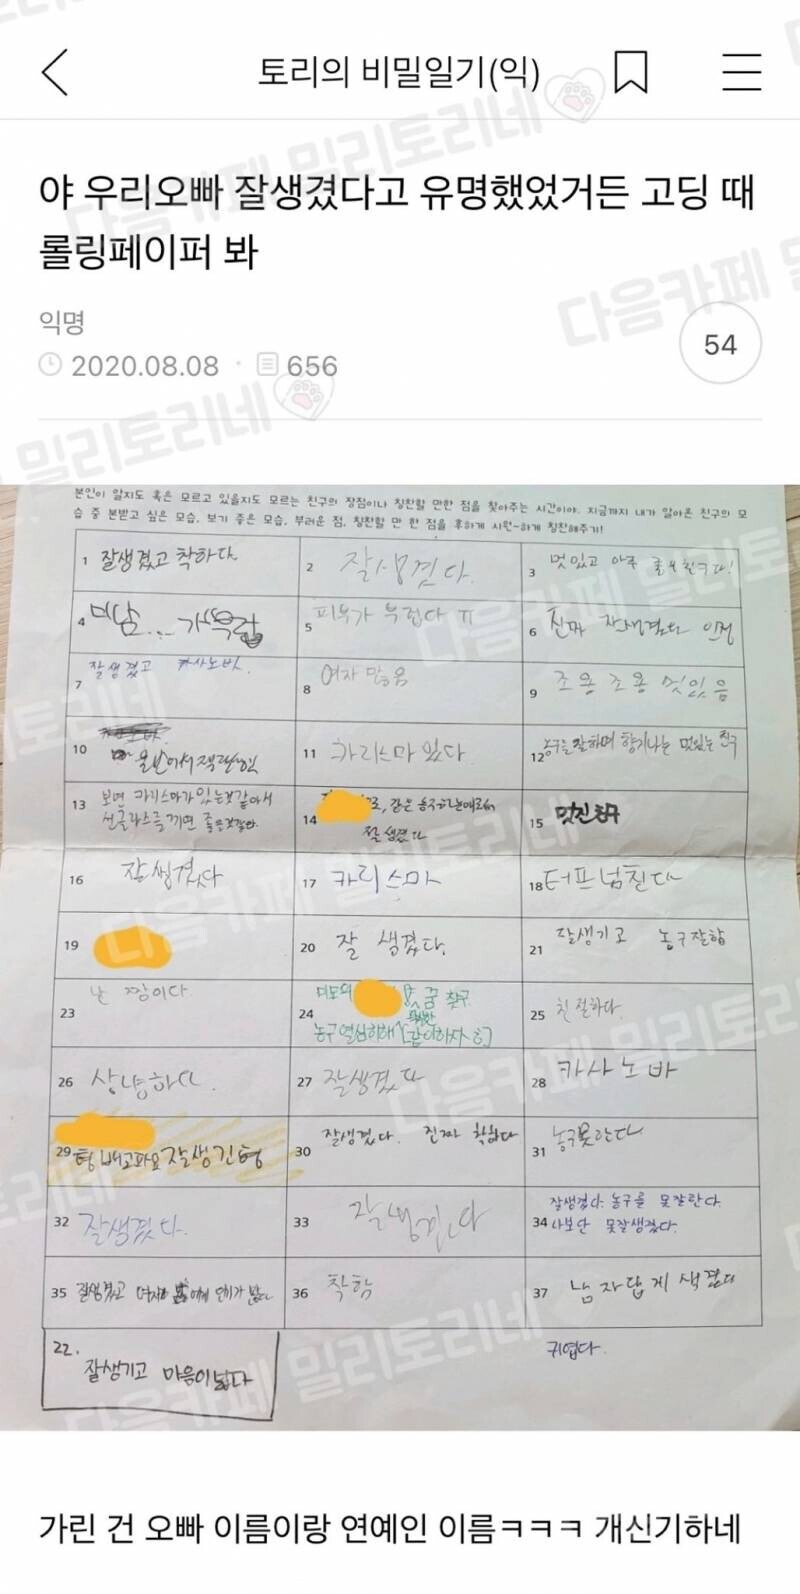 토리의 비밀일기(익)
야 우리오빠 잘생겼다고 유명했었거든 고딩 때
롤링페이퍼 봐
익명
2020.08.08 · 656
54
본인이 알지도 혹은 모르고 있을지도 모르는 친구의 장점이나 칭찬할 만한 점을 찾아주는 시간이야. 지금까지 내가 알아온 친구의 모
습 중 본받고 싶은 모습, 보기 좋은 모습, 부러운 점, 칭찬할 만 한 점을 후하게 시원~하게 칭찬해주기!
1 잘생겼고 착하다
2 잘생겼다.
3 멋있고 아주 친구다!
4 미남...
5 피부가 부럽다 ㅠ
6 진짜 잘생겼다 인정
7 잘생겼고 카사노바.
8 여자 많음
9 조용조용 멋있음
10 울산에서
11 카리스마 있다.
12 농구를 잘하며 향기나는 멋있는 친구
13 보면 카리스마가 있는것같아서
선글라스를 끼면 좋은것같아.
14 같은
잘생겼다
15 멋진친구
16 잘생겼다
17 카리스마
18 터프넘친다
19
20 잘 생겼다.
21 잘생기고 농구잘함
23 난 짱이다
24 미모의 꿈 찾구
농구열심히해 [같이하자 ㅎ]
25 친절하다.
26 상냥하다.
27 잘생겼다
28 카사노바
29 형 배고파요 잘생긴형
30 잘생겼다. 진짜 착하다
31 농구못한다
32 잘생겼다.
33 잘생긴다
34 잘생겼다. 농구를 못잘한다.
나보단 못잘생겼다.
35 잘생겼고 인기가 많다
36 착함
37 남자답게 생겼다
22. 잘생기고 마음이넓다
귀엽다.
가린 건 오빠 이름이랑 연예인 이름ㅋㅋㅋ 개신기하네
다음카페 밀리토리네